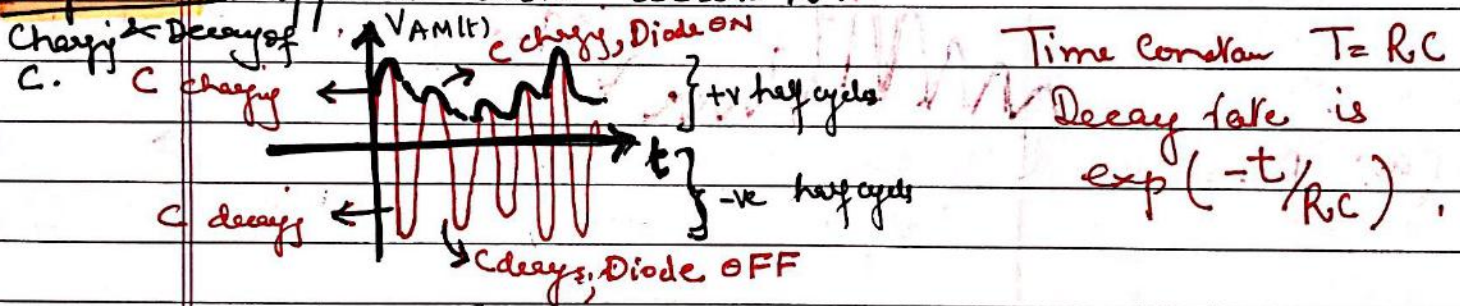 Chargig & Decay of
C.
VAM(t)
C chargig, Diode ON
C chargig
+v half cycles
t
-ve half cycles
C decays
C decays, Diode OFF
Time Constan T= RC
Decay rate is
exp(-t/RC).